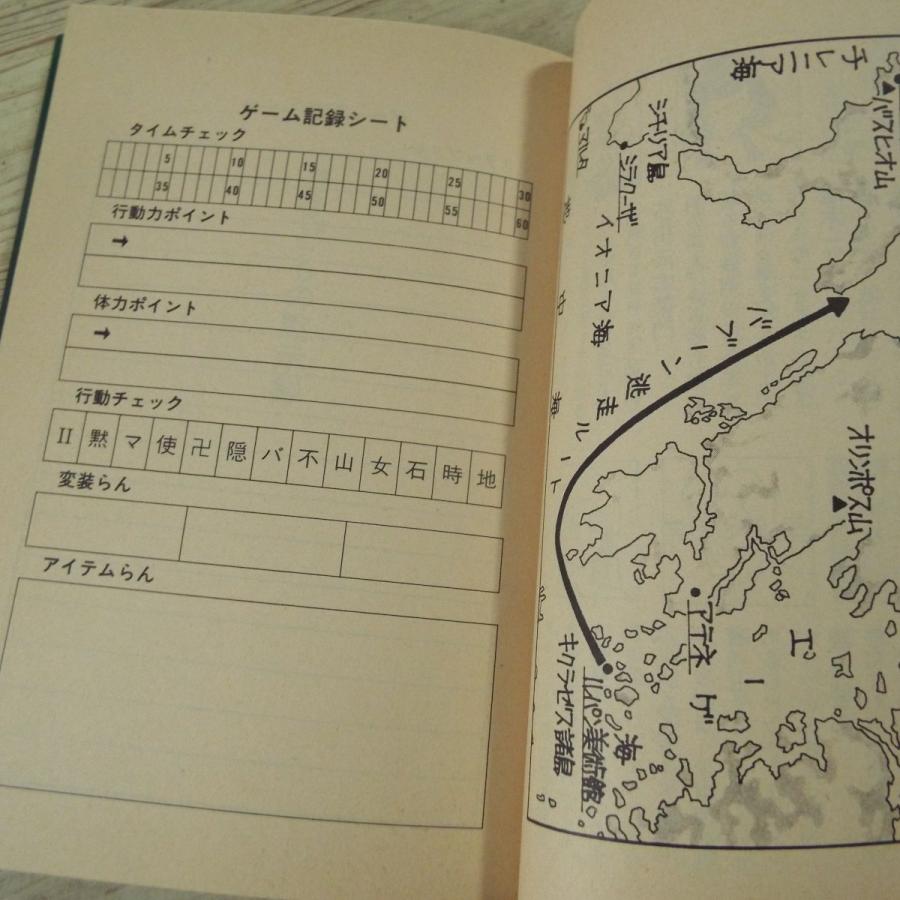 ゲーム記録シート
タイムチェック
5 10 15 20 25 30
35 40 45 50 55 60
行動力ポイント
➞
体力ポイント
➞
行動チェック
II 黙 マ 使 卍 隠 バ 不 山 女 石 時 地
変装らん
アイテムらん
チレニア海
バスビオ山
シチリア島
シラクーザ
イオニア海
バブーン逃走ルート
オリンポス山
アテネ
エーゲ海
ルパン美術館
キクラデス諸島